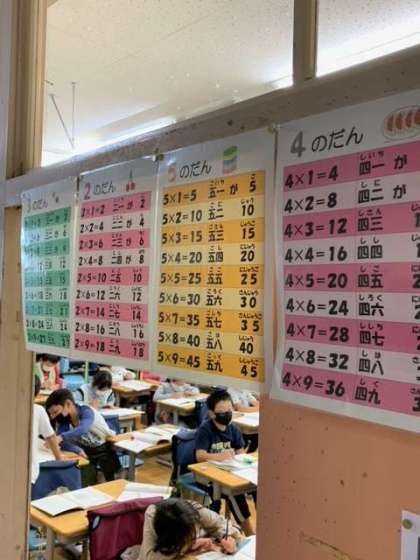 のだん
2 のだん
2×1=2 二一 が 2
2×2=4 二二 が 4
2×3=6 二三 が 6
2×4=8 二四 が 8
2×5=10 二五 10
2×6=12 二六 12
2×7=14 二七 14
2×8=16 二八 16
2×9=18 二九 18
5 のだん
5×1=5 五一 が 5
5×2=10 五二 10
5×3=15 五三 15
5×4=20 五四 20
5×5=25 五五 25
5×6=30 五六 30
5×7=35 五七 35
5×8=40 五八 40
5×9=45 五九 45
4 のだん
4×1=4 四一 が
4×2=8 四二 が
4×3=12 四三
4×4=16 四四
4×5=20 四五
4×6=24 四六
4×7=28 四七
4×8=32 四八
4×9=36 四九